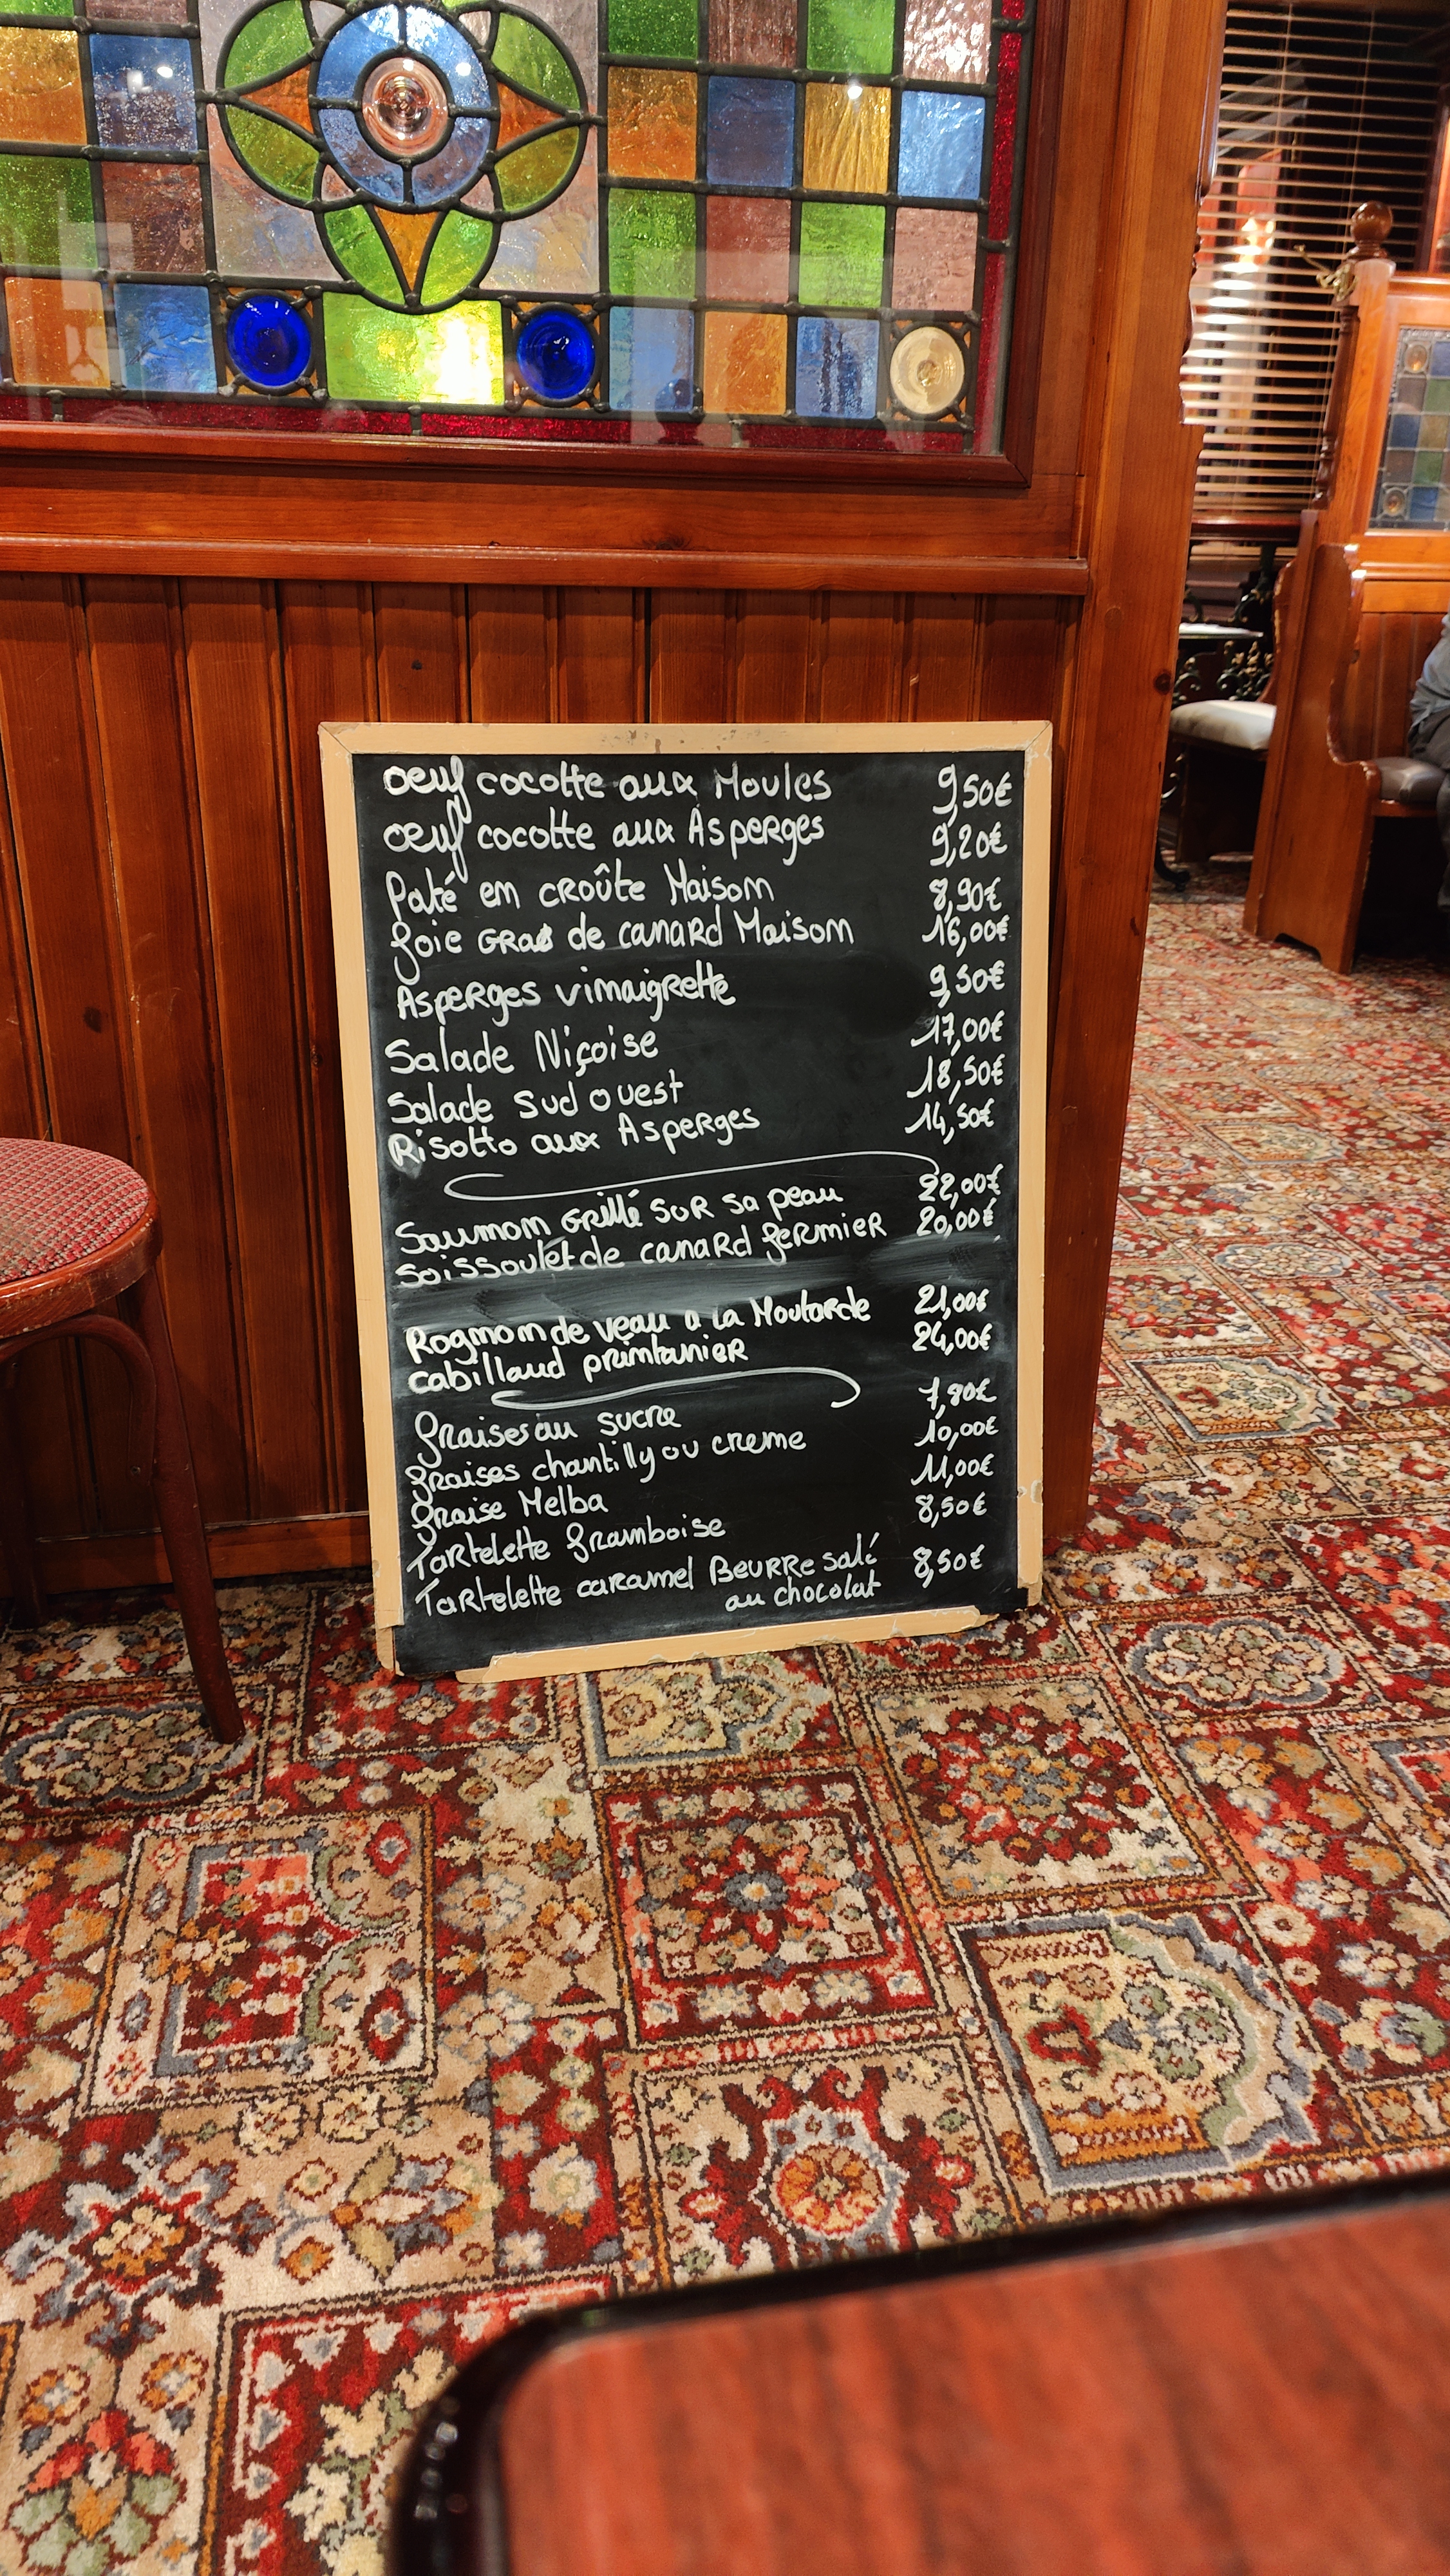 oeuf cocotte aux Moules 9,50€
oeuf cocotte aux Asperges 9,20€
Paté en croûte Maison 8,90€
foie gras de canard Maison 16,00€
Asperges vinaigrette 9,50€
Salade Niçoise 17,00€
Salade Sud ouest 18,50€
Risotto aux Asperges 14,50€
Saumon Grillé sur sa peau 22,00€
Soissoulet de canard fermier 20,00€
Rognon de veau a la Moutarde 21,00€
cabillaud printanier 24,00€
fraises au sucre 7,80€
fraises chantilly ou creme 10,00€
fraise Melba 11,00€
Tartelette framboise 8,50€
Tartelette caramel Beurre salé 8,50€
au chocolat